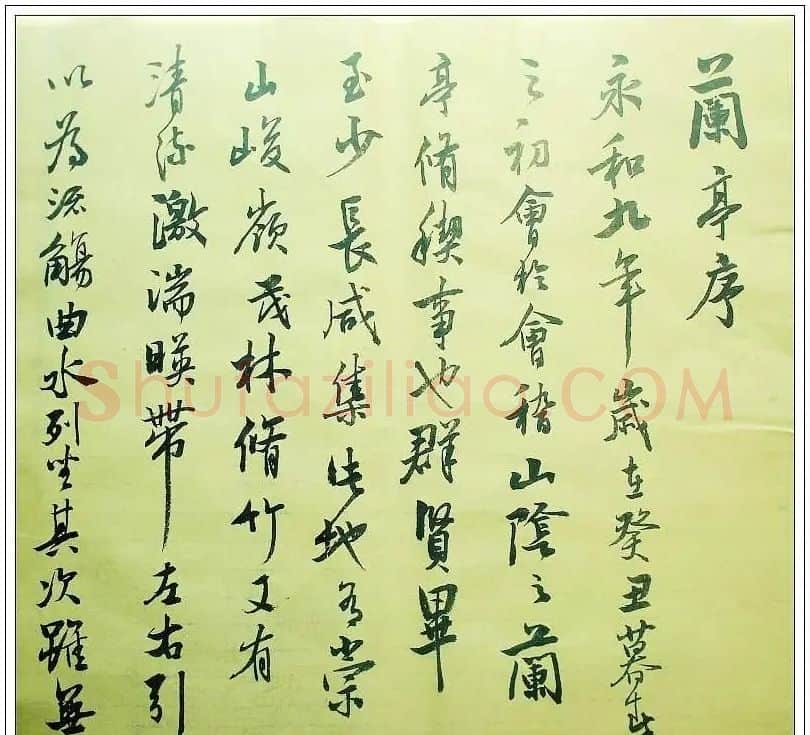 蘭亭序
永和九年歲在癸丑暮春
之初會於會稽山陰之蘭
亭脩稧事也群賢畢
至少長咸集此地有崇
山峻嶺茂林脩竹又有
清流激湍暎帶左右引
以為流觴曲水列坐其次雖無
Shufaziliao.COM